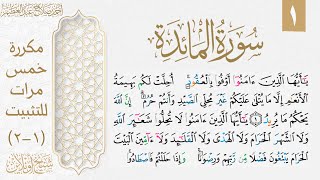 ١
سورة المائدة
مكررة
خمس
مرات
للتثبيت
(١-٢)
يَٰٓأَيُّهَا ٱلَّذِينَ ءَامَنُوٓا۟ أَوْفُوا۟ بِٱلْعُقُودِ أُحِلَّتْ لَكُم بَهِيمَةُ
ٱلْأَنْعَٰمِ إِلَّا مَا يُتْلَىٰ عَلَيْكُمْ غَيْرَ مُحِلِّى ٱلصَّيْدِ وَأَنتُمْ حُرُمٌ إِنَّ ٱللَّهَ
يَحْكُمُ مَا يُرِيدُ ١ يَٰٓأَيُّهَا ٱلَّذِينَ ءَامَنُوا۟ لَا تُحِلُّوا۟ شَعَٰٓئِرَ ٱللَّهِ
وَلَا ٱلشَّهْرَ ٱلْحَرَامَ وَلَا ٱلْهَدْىَ وَلَا ٱلْقَلَٰٓئِدَ وَلَآ ءَآمِّينَ ٱلْبَيْتَ
ٱلْحَرَامَ يَبْتَغُونَ فَضْلًا مِّن رَّبِّهِمْ وَرِضْوَٰنًا وَإِذَا حَلَلْتُمْ فَٱصْطَادُوا۟